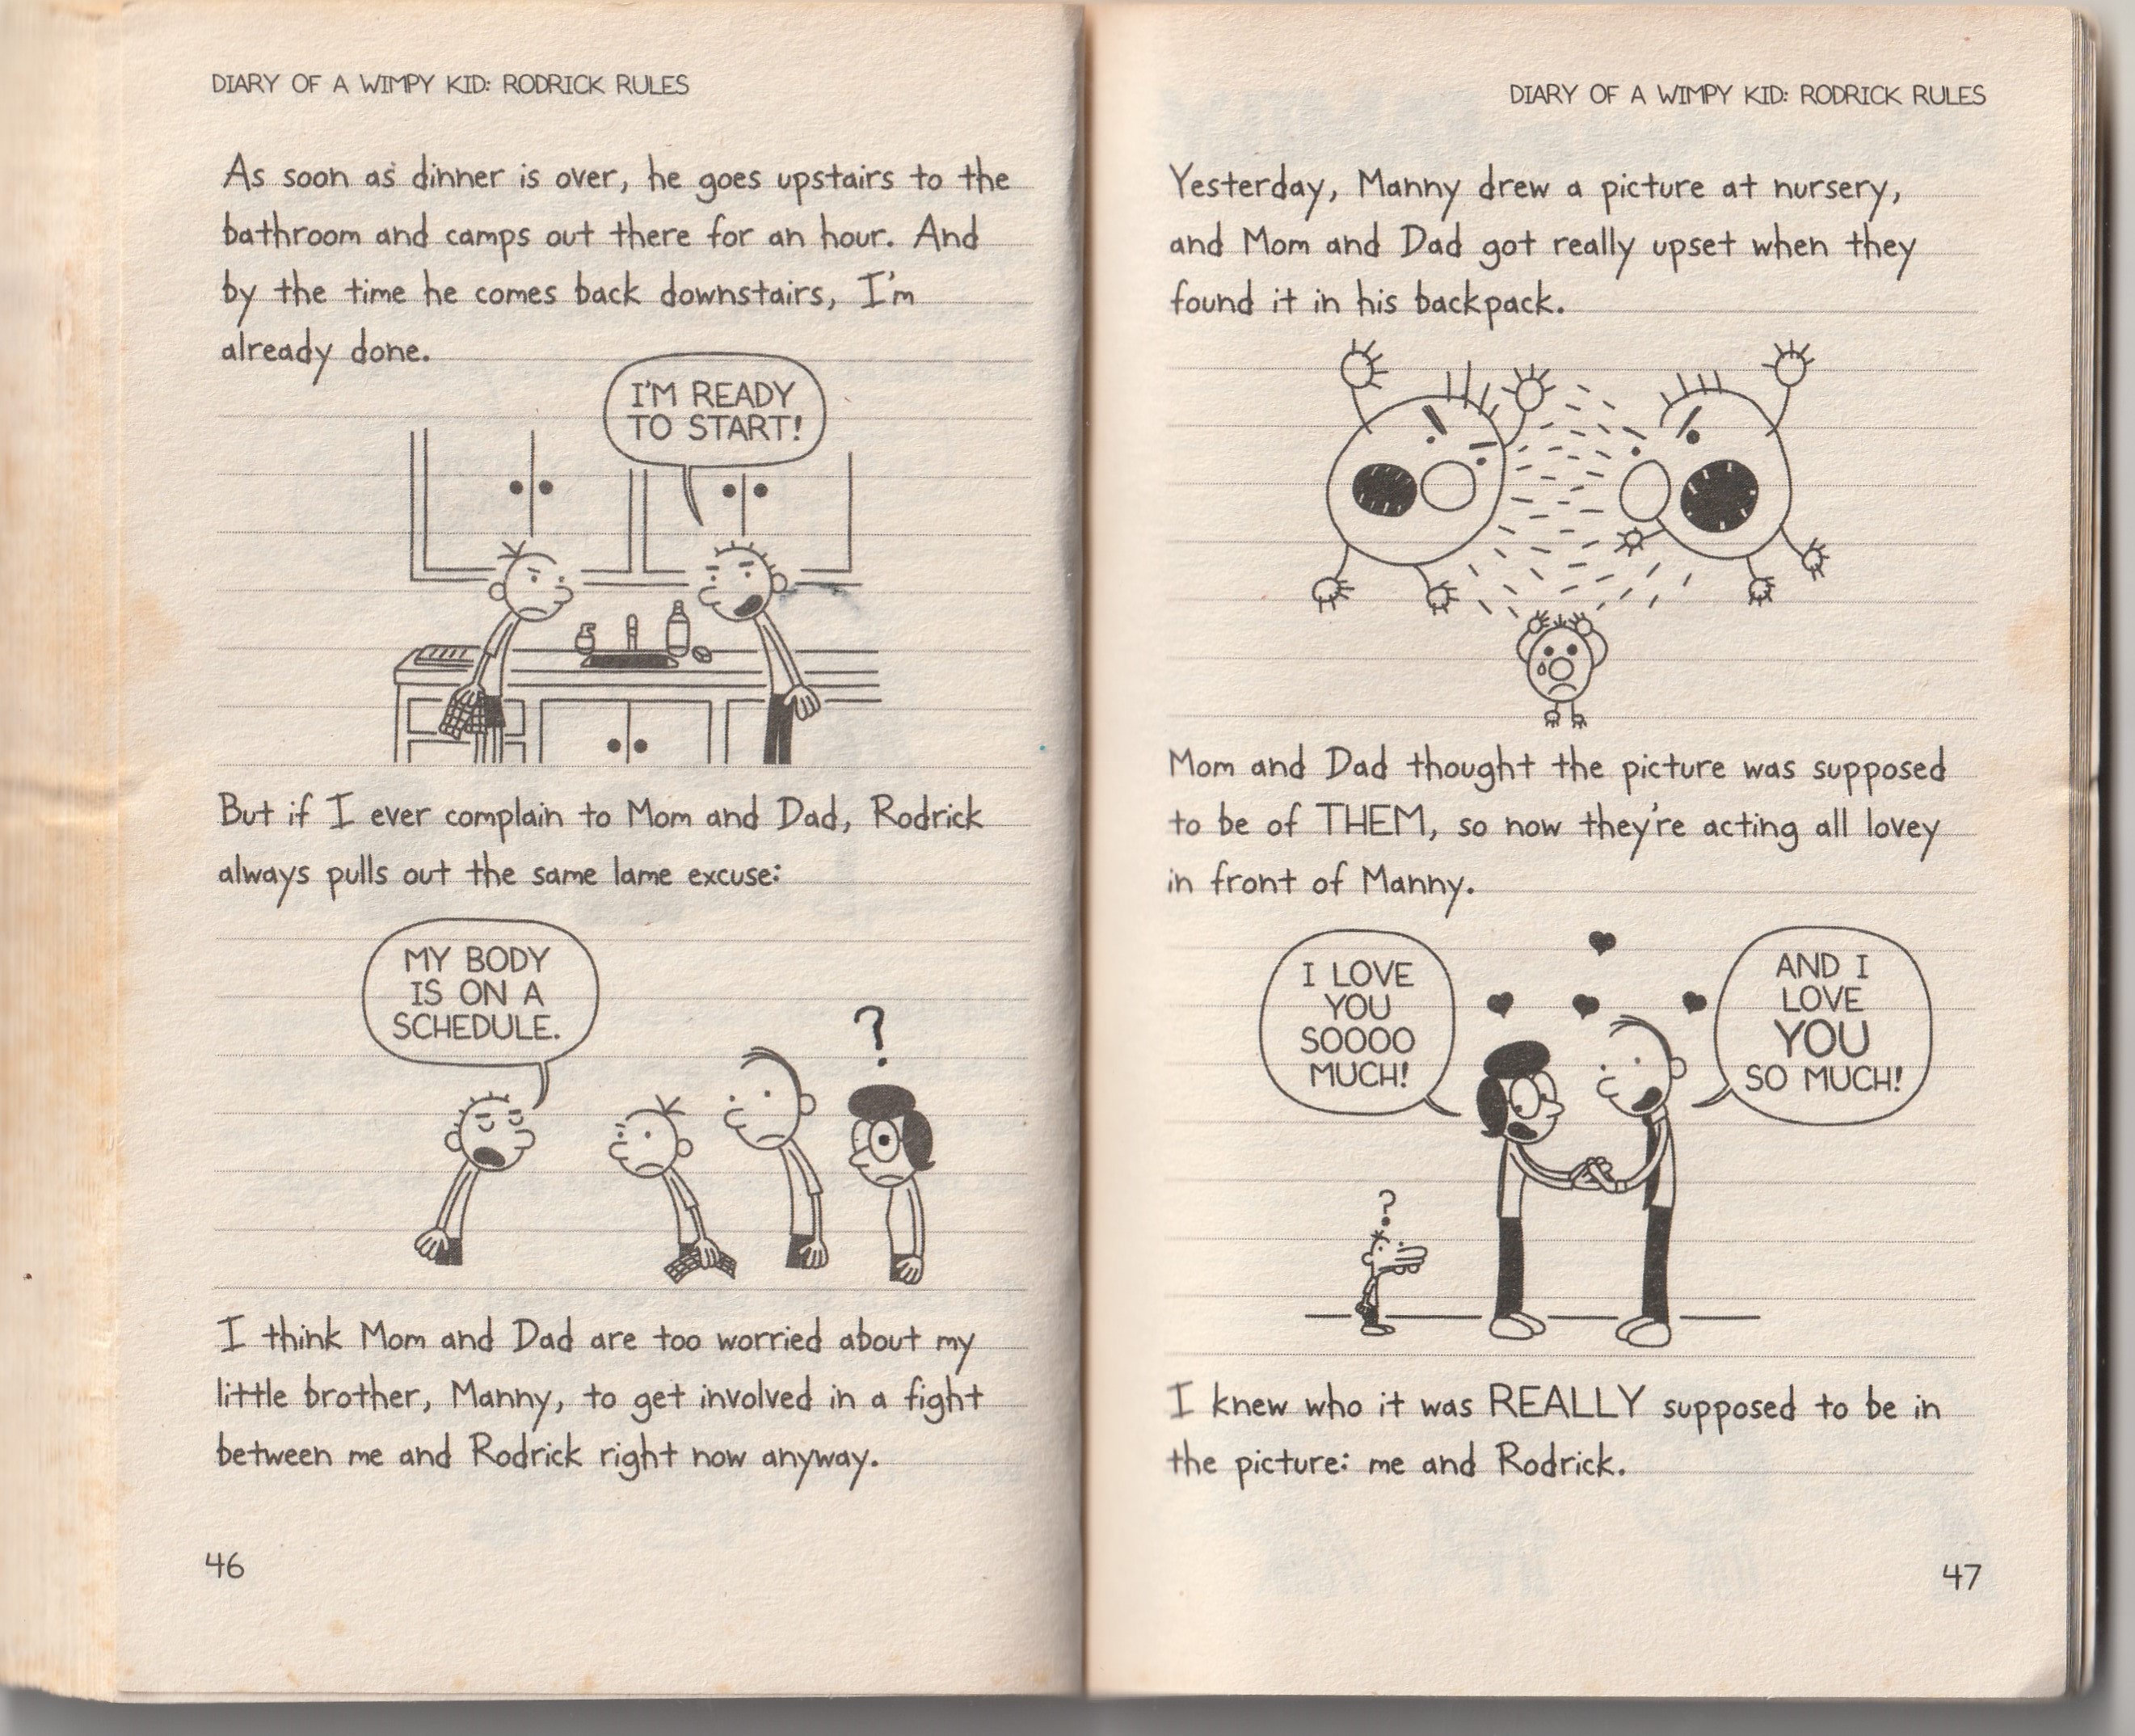 DIARY OF A WIMPY KID: RODRICK RULES
As soon as dinner is over, he goes upstairs to the
bathroom and camps out there for an hour. And
by the time he comes back downstairs, I'm
already done.
I'M READY
TO START!
But if I ever complain to Mom and Dad, Rodrick
always pulls out the same lame excuse:
MY BODY
IS ON A
SCHEDULE.
?
I think Mom and Dad are too worried about my
little brother, Manny, to get involved in a fight
between me and Rodrick right now anyway.
46
DIARY OF A WIMPY KID: RODRICK RULES
Yesterday, Manny drew a picture at nursery,
and Mom and Dad got really upset when they
found it in his backpack.
Mom and Dad thought the picture was supposed
to be of THEM, so now they're acting all lovey
in front of Manny.
I LOVE
YOU
SOOOO
MUCH!
AND I
LOVE
YOU
SO MUCH!
?
I knew who it was REALLY supposed to be in
the picture: me and Rodrick.
47